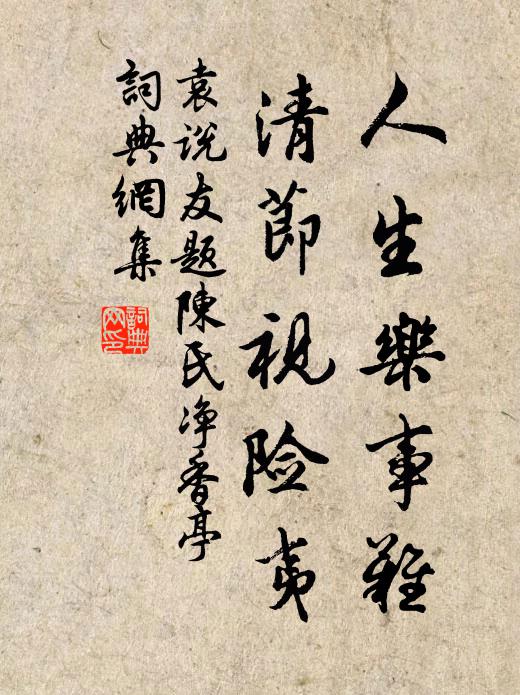 人生樂事難
清節視险夷
袁说友題陳氏净香亭
詞典網集
詞典
网印